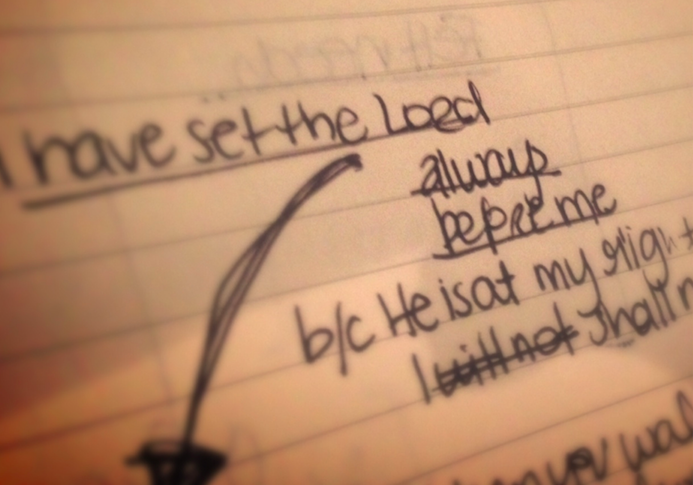 I have set the Lord
always
before me
b/c He is at my right
I will not shall